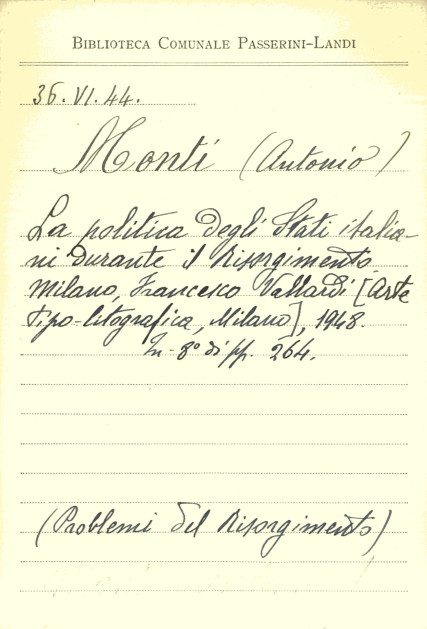 BIBLIOTECA COMUNALE PASSERINI-LANDI
36.VI.44.
Monti (Antonio)
La politica degli Stati italia-
ni durante il Risorgimento.
Milano, Francesco Vallardi [Arte
Tipo-litografica, Milano], 1948.
In-8° di pp. 264.
(Problemi del Risorgimento)